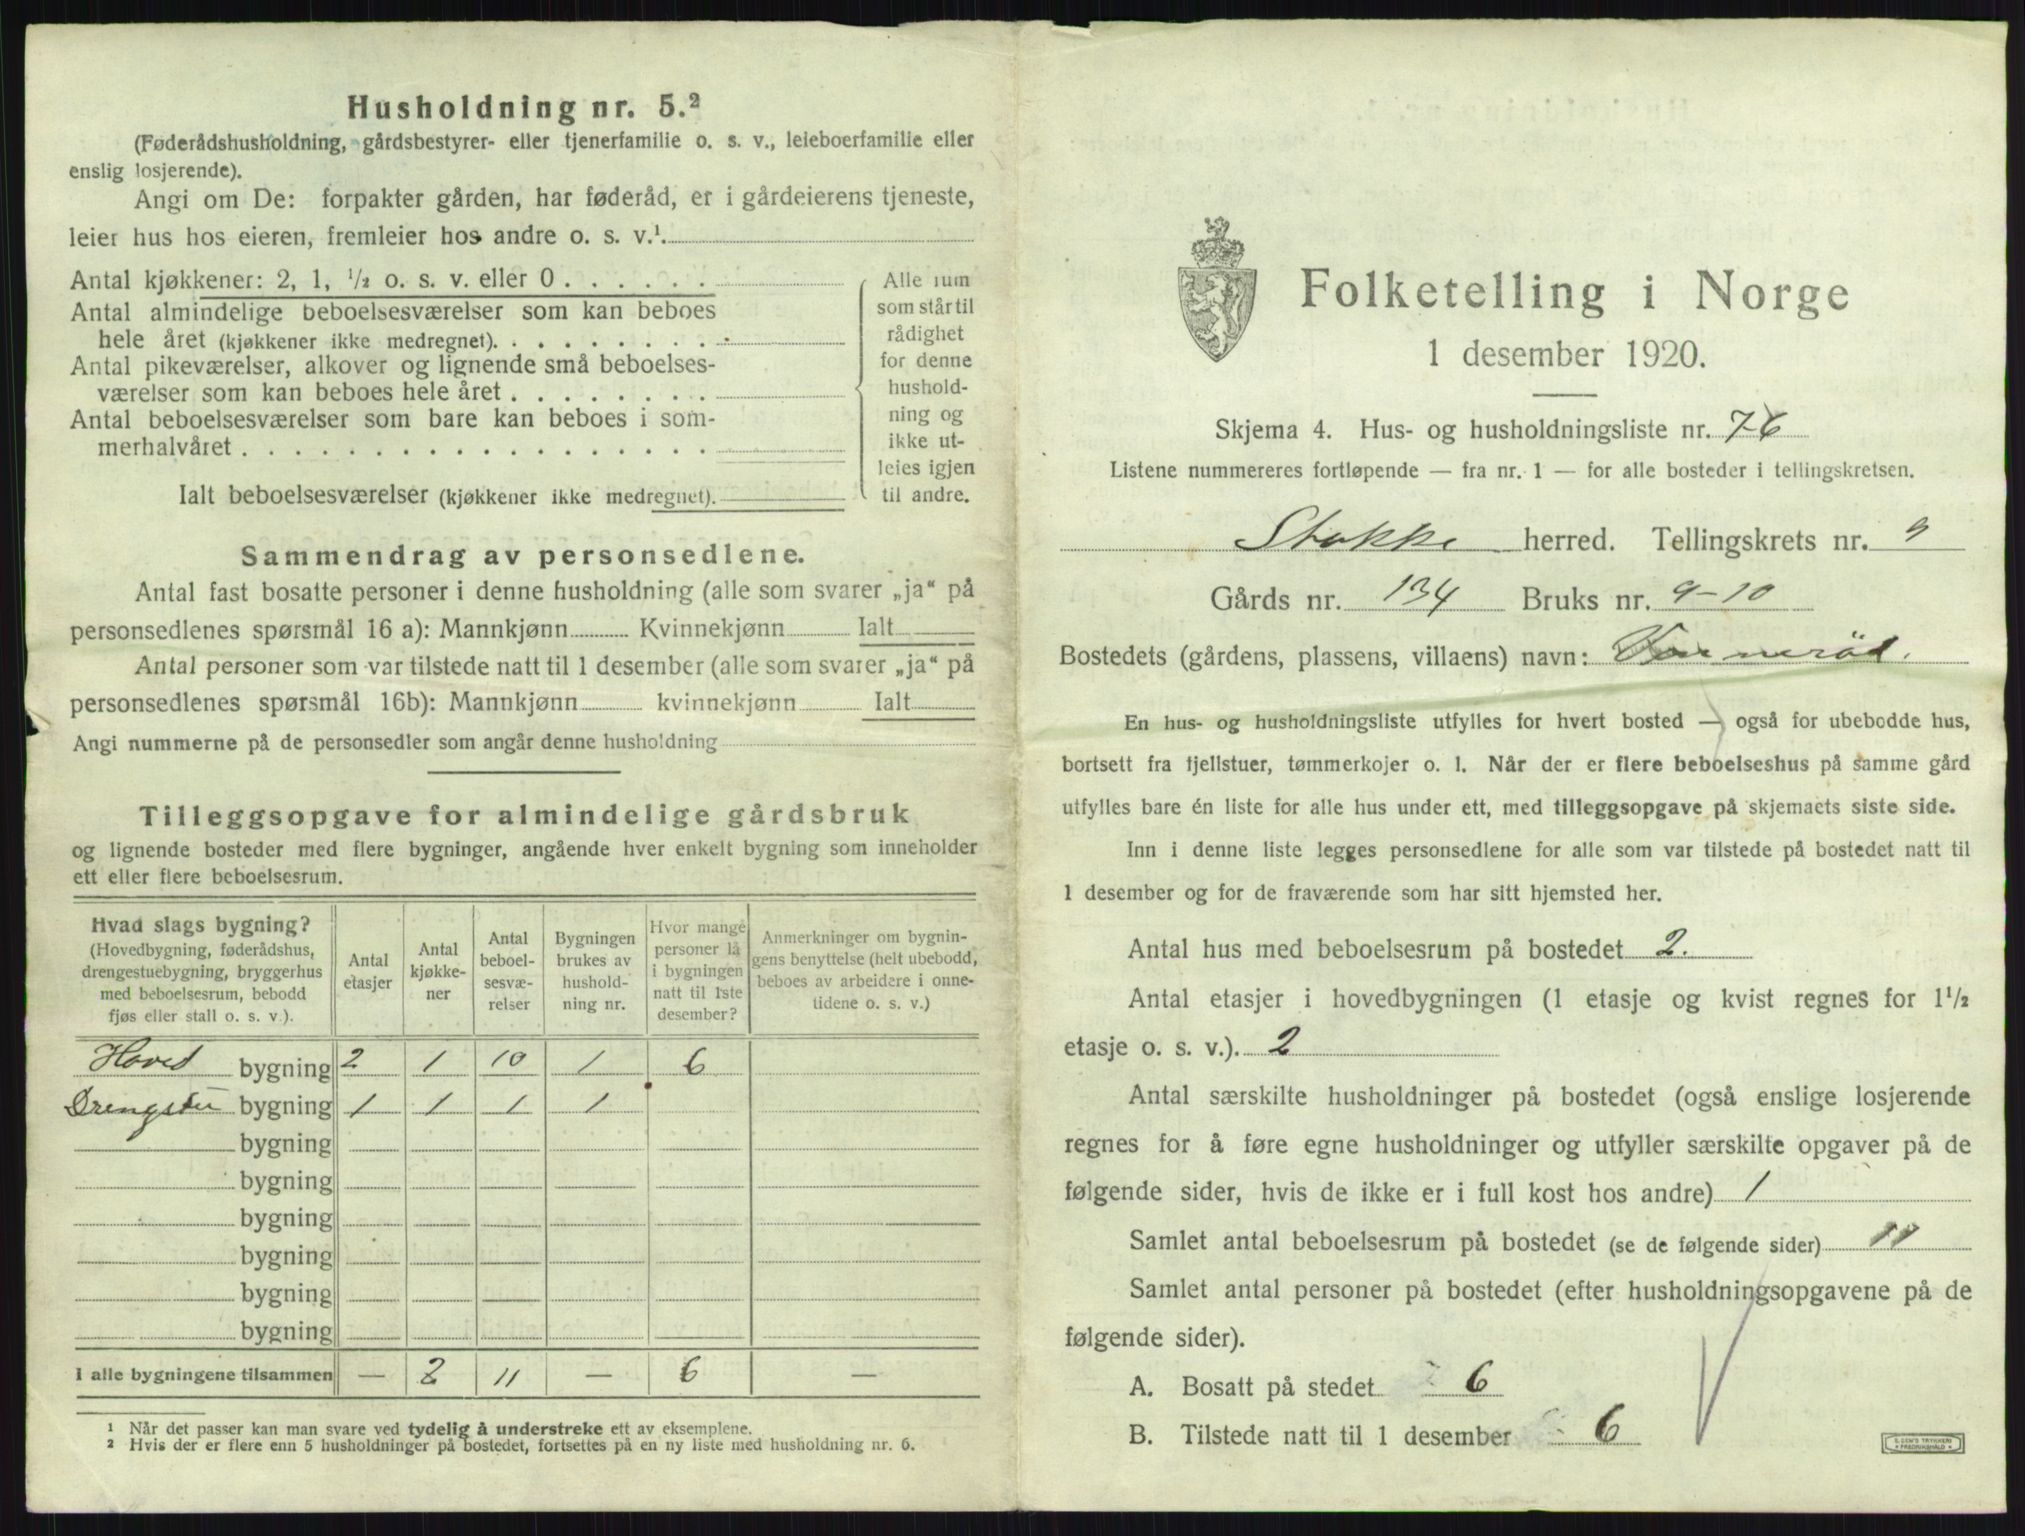 Husholdning nr. 5.²
(Føderådshusholdning, gårdsbestyrer- eller tjenerfamilie o. s. v., leieboerfamilie eller
enslig losjerende).
Angi om De: forpakter gården, har føderåd, er i gårdeierens tjeneste,
leier hus hos eieren, fremleier hos andre o. s. v.¹
Antal kjøkkener: 2, 1, ½ o. s. v. eller 0 . . . . . .
Antal almindelige beboelsesværelser som kan beboes
hele året (kjøkkener ikke medregnet). . . . . . . . .
Antal pikeværelser, alkover og lignende små beboelses-
værelser som kan beboes hele året . . . . . . . .
Antal beboelsesværelser som bare kan beboes i som-
merhalvåret . . . . . . . . . . . . . . . . . .
Ialt beboelsesværelser (kjøkkener ikke medregnet).
Alle rum
som står til
rådighet
for denne
hushold-
ning og
ikke ut-
leies igjen
til andre.
Sammendrag av personsedlene.
Antal fast bosatte personer i denne husholdning (alle som svarer „ja“ på
personsedlenes spørsmål 16 a): Mannkjønn Kvinnekjønn Ialt
Antal personer som var tilstede natt til 1 desember (alle som svarer „ja“ på
personsedlenes spørsmål 16b): Mannkjønn kvinnekjønn Ialt
Angi nummerne på de personsedler som angår denne husholdning
Tilleggsopgave for almindelige gårdsbruk
og lignende bosteder med flere bygninger, angående hver enkelt bygning som inneholder
ett eller flere beboelsesrum.
Hvad slags bygning?
(Hovedbygning, føderådshus,
drengestuebygning, bryggerhus
med beboelsesrum, bebodd
fjøs eller stall o. s. v.).
Antal
etasjer
Antal
kjøkke-
ner
Antal
beboel-
sesvæ-
relser
Bygningen
brukes av
hushold-
ning nr.
Hvor mange
personer lå
i bygningen
natt til 1ste
desember?
Anmerkninger om bygnin-
gens benyttelse (helt ubebodd,
beboes av arbeidere i onne-
tidene o. s. v.)
Hoved bygning 2 1 10 1 6
Drengstu bygning 1 1 1 1
bygning
bygning
bygning
bygning
bygning
bygning
I alle bygningene tilsammen — 2 11 — 6 —
¹ Når det passer kan man svare ved tydelig å understreke ett av eksemplene.
² Hvis der er flere enn 5 husholdninger på bostedet, fortsettes på en ny liste med husholdning nr. 6.
Folketelling i Norge
1 desember 1920.
Skjema 4. Hus- og husholdningsliste nr. 76
Listene nummereres fortløpende — fra nr. 1 — for alle bosteder i tellingskretsen.
Stokke herred. Tellingskrets nr. 9
Gårds nr. 134 Bruks nr. 9-10
Bostedets (gårdens, plassens, villaens) navn:
En hus- og husholdningsliste utfylles for hvert bosted — også for ubebodde hus,
bortsett fra fjellstuer, tømmerkojer o. l. Når der er flere beboelseshus på samme gård
utfylles bare én liste for alle hus under ett, med tilleggsopgave på skjemaets siste side.
Inn i denne liste legges personsedlene for alle som var tilstede på bostedet natt til
1 desember og for de fraværende som har sitt hjemsted her.
Antal hus med beboelsesrum på bostedet 2.
Antal etasjer i hovedbygningen (1 etasje og kvist regnes for 1½
etasje o. s. v.). 2
Antal særskilte husholdninger på bostedet (også enslige losjerende
regnes for å føre egne husholdninger og utfyller særskilte opgaver på de
følgende sider, hvis de ikke er i full kost hos andre) 1
Samlet antal beboelsesrum på bostedet (se de følgende sider) 11
Samlet antal personer på bostedet (efter husholdningsopgavene på de
følgende sider).
A. Bosatt på stedet 6
B. Tilstede natt til 1 desember 6